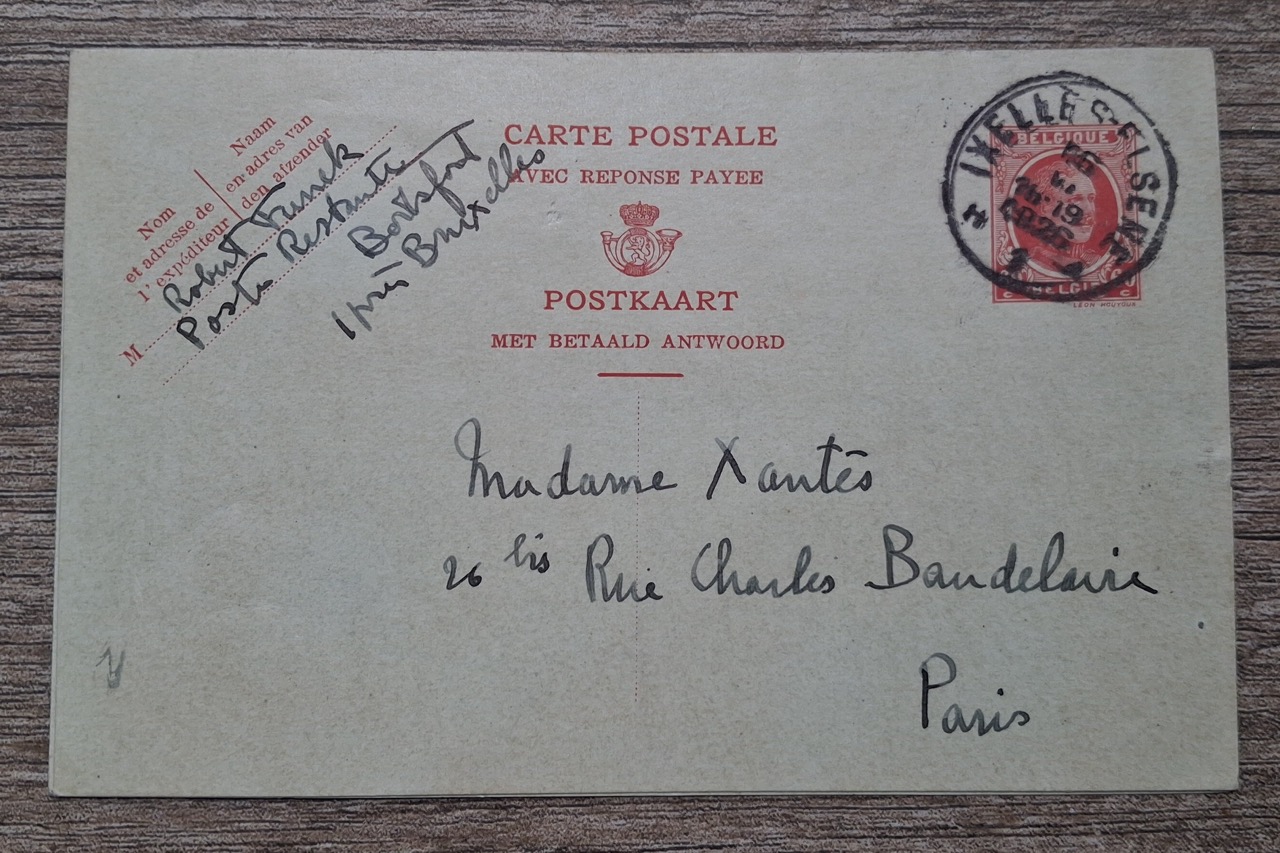 Nom
et adresse de
l'expéditeur
Naam
en adres van
den afzender
M Robert
Poste Restante
Boitsfort
près Bruxelles
CARTE POSTALE
AVEC REPONSE PAYEE
POSTKAART
MET BETAALD ANTWOORD
IXELLES-ELSENE
BELGIQUE
BELGIE
Madame Xantès
26 bis Rue Charles Baudelaire
Paris